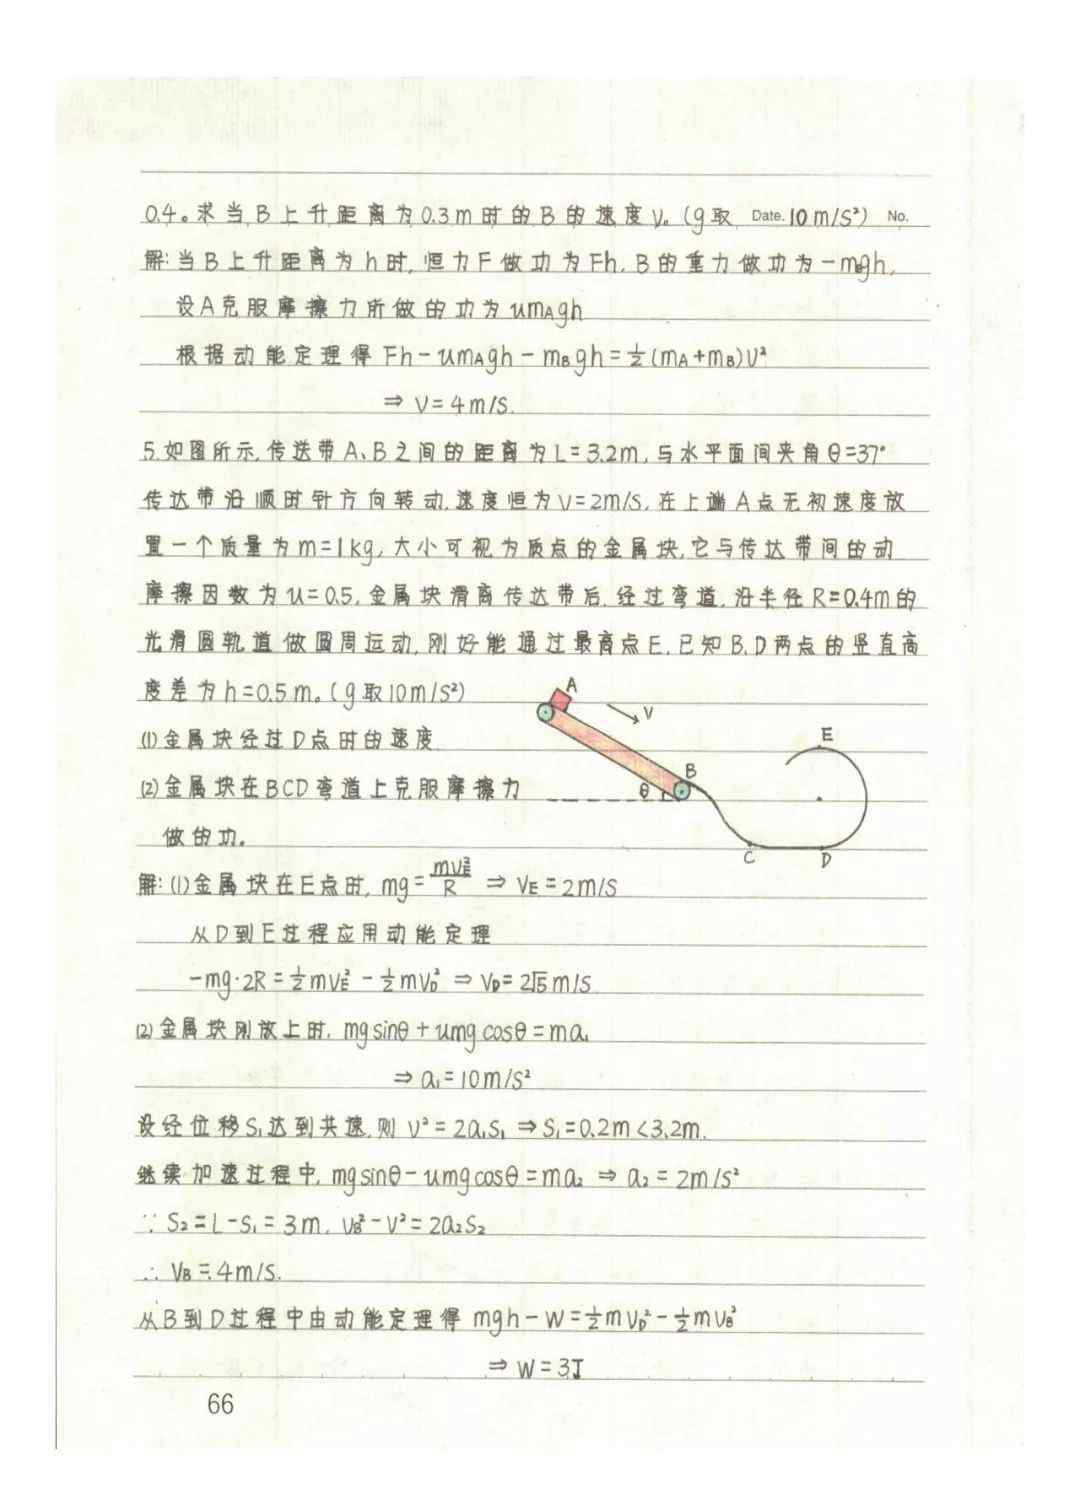 0.4。求当B上升距离为0.3m时的B的速度V。(g取 Date. 10m/s²) No.
解:当B上升距离为h时,恒力F做功为Fh,B的重力做功为-mBgh,
设A克服摩擦力所做的功为umAgh
根据动能定理得 Fh-umAgh-mBgh=½(mA+mB)V²
⇒ V=4m/s.
5.如图所示,传送带A、B之间的距离为L=3.2m,与水平面间夹角θ=37°
传达带沿顺时针方向转动,速度恒为V=2m/s,在上端A点无初速度放
置一个质量为m=1kg,大小可视为质点的金属块,它与传达带间的动
摩擦因数为u=0.5,金属块滑离传达带后,经过弯道,沿半径R=0.4m的
光滑圆轨道做圆周运动,刚好能通过最高点E,已知B、D两点的竖直高
度差为h=0.5m。(g取10m/s²)
A
V
(1)金属块经过D点时的速度
E
(2)金属块在BCD弯道上克服摩擦力
B
θ
做的功.
C D
解:(1)金属块在E点时, mg=mVE²/R ⇒ VE=2m/s
从D到E过程应用动能定理
-mg·2R=½mVE²-½mVD² ⇒ VD=2√5m/s
(2)金属块刚放上时, mgsinθ+umgcosθ=ma₁
⇒ a₁=10m/s²
设经位移S₁达到共速,则 V²=2a₁S₁ ⇒ S₁=0.2m<3.2m.
继续加速过程中, mgsinθ-umgcosθ=ma₂ ⇒ a₂=2m/s²
∵ S₂=L-S₁=3m, VB²-V²=2a₂S₂
∴ VB=4m/s.
从B到D过程中由动能定理得 mgh-W=½mVD²-½mVB²
⇒ W=3J
66